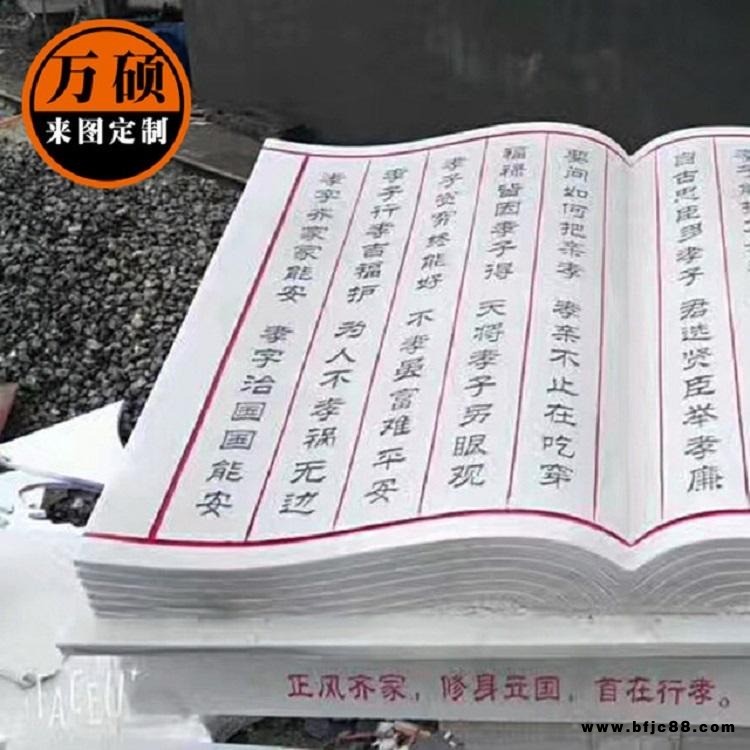 万硕
来图定制
自古忠臣多孝子 君选贤臣举孝廉
要问如何把亲孝 孝亲不止在吃穿
福禄皆因孝子得 天将孝子另眼观
孝子贫穷终能好 不孝虽富难平安
孝子行孝吉福护 为人不孝祸无边
孝字齐家家能安 孝字治国国能安
正风齐家，修身立国，首在行孝。
www.bfjc88.com